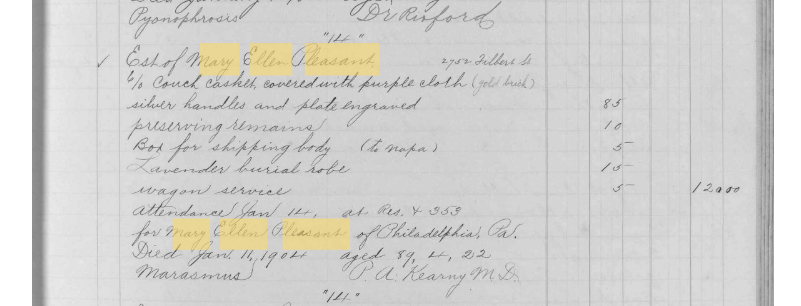 Pyonophrosis Dr Rixford
"14"
✓ Est of Mary Ellen Pleasant 2752 Filbert St
6/0 Couch Casket, covered with purple cloth (gold brush)
silver handles and plate engraved 85
preserving remains 10
Box for shipping body (to Napa) 5
Lavender burial robe 15
wagon service 5 120 00
attendance Jan 14, at Res. & 353
for Mary Ellen Pleasant of Philadelphia, Pa.
Died Jan. 11, 1904 aged 89, 4, 22
Marasmus P. A. Kearny M.D.
"14"